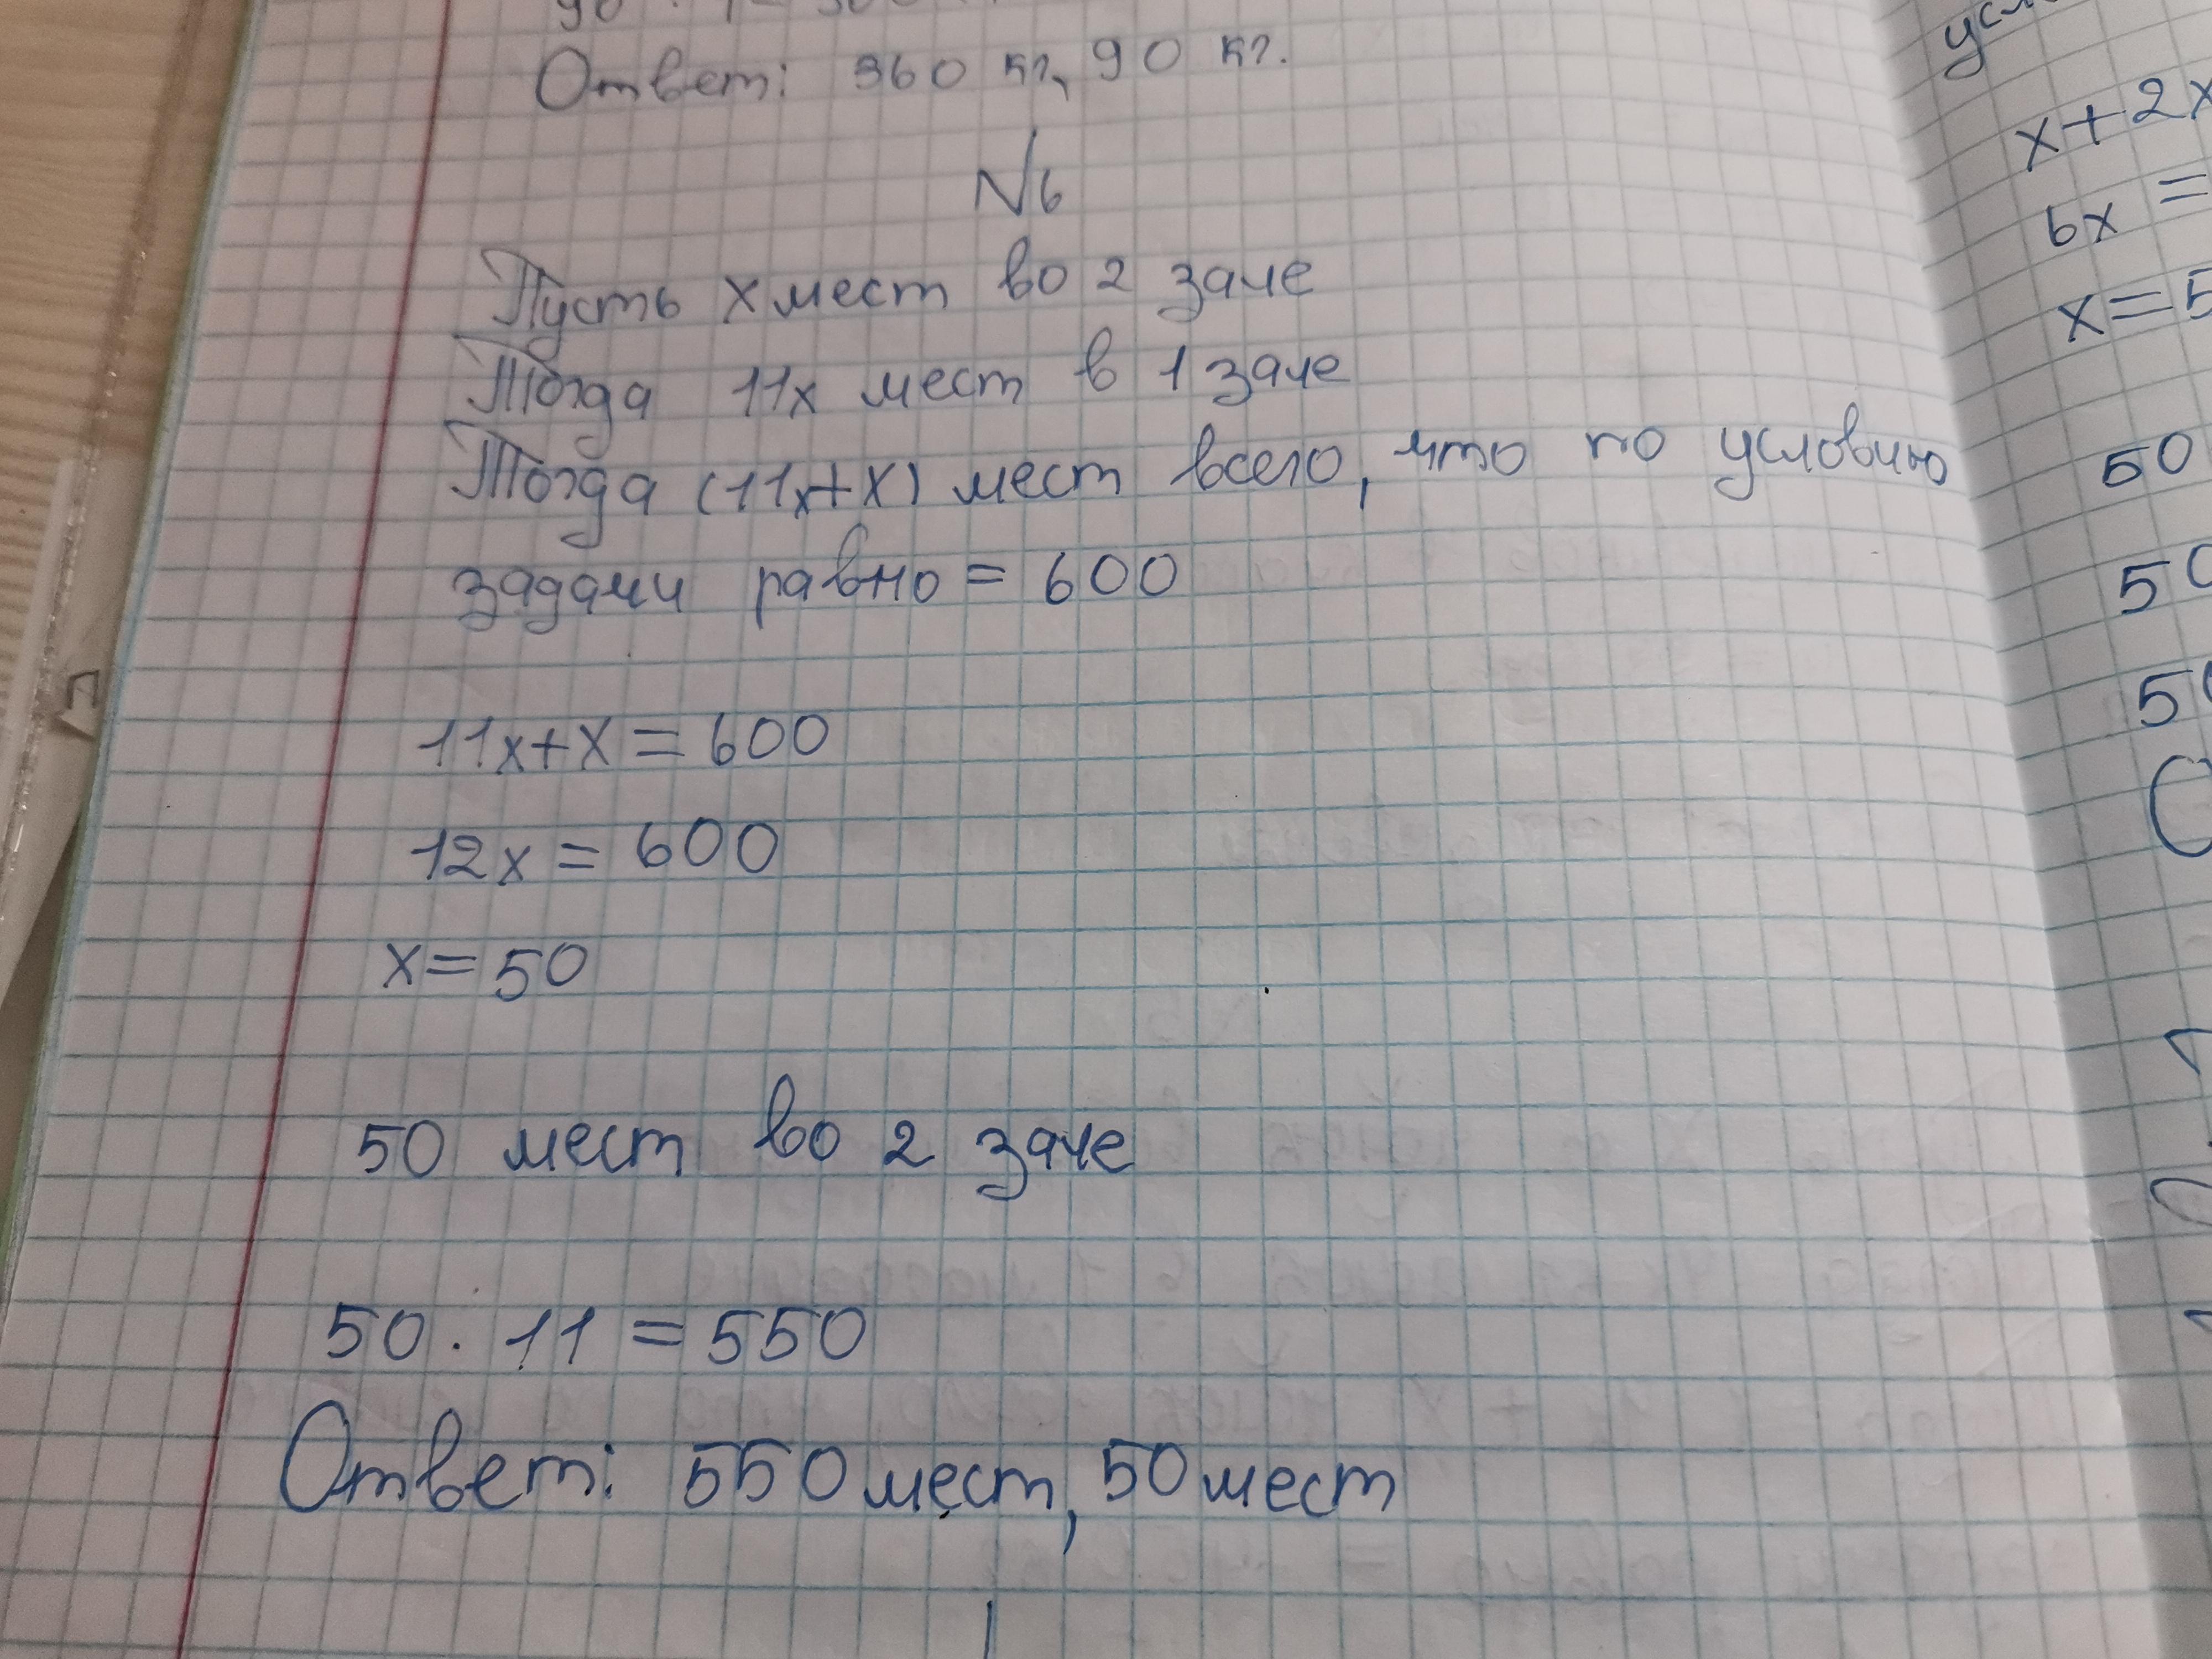 Ответ: 360 кг, 90 кг.
№6
Пусть x мест во 2 зале
Тогда 11x мест в 1 зале
Тогда (11x+x) мест всего, что по условию
задачи равно = 600
11x+x=600
12x=600
x=50
50 мест во 2 зале
50·11=550
Ответ: 550 мест, 50 мест
x+2x
6x=
x=5
50
50
50